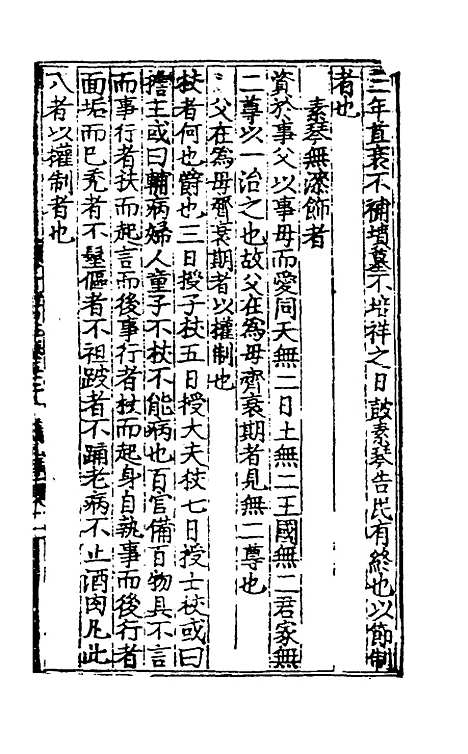 三年直衰不補墳墓不培祥之日鼓素琴告民有終也以節制
者也
素琴無漆飾者
資於事父以事母而愛同天無二日土無二王國無二君家無
二尊以一治之也故父在為母齊衰期者見無二尊也
父在為母齊衰期者以權制也
杖者何也爵也三日授子杖五日授大夫杖七日授士杖或曰
擔主或曰輔病婦人童子不杖不能病也百官備百物具不言
而事行者扶而起言而後事行者杖而起身自執事而後行者
面垢而已禿者不髽傴者不袒跛者不踊老病不止酒肉凡此
八者以權制者也